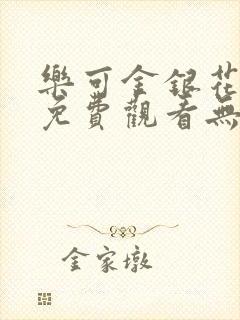 樂可金銀花
免費觀看無
金家墩